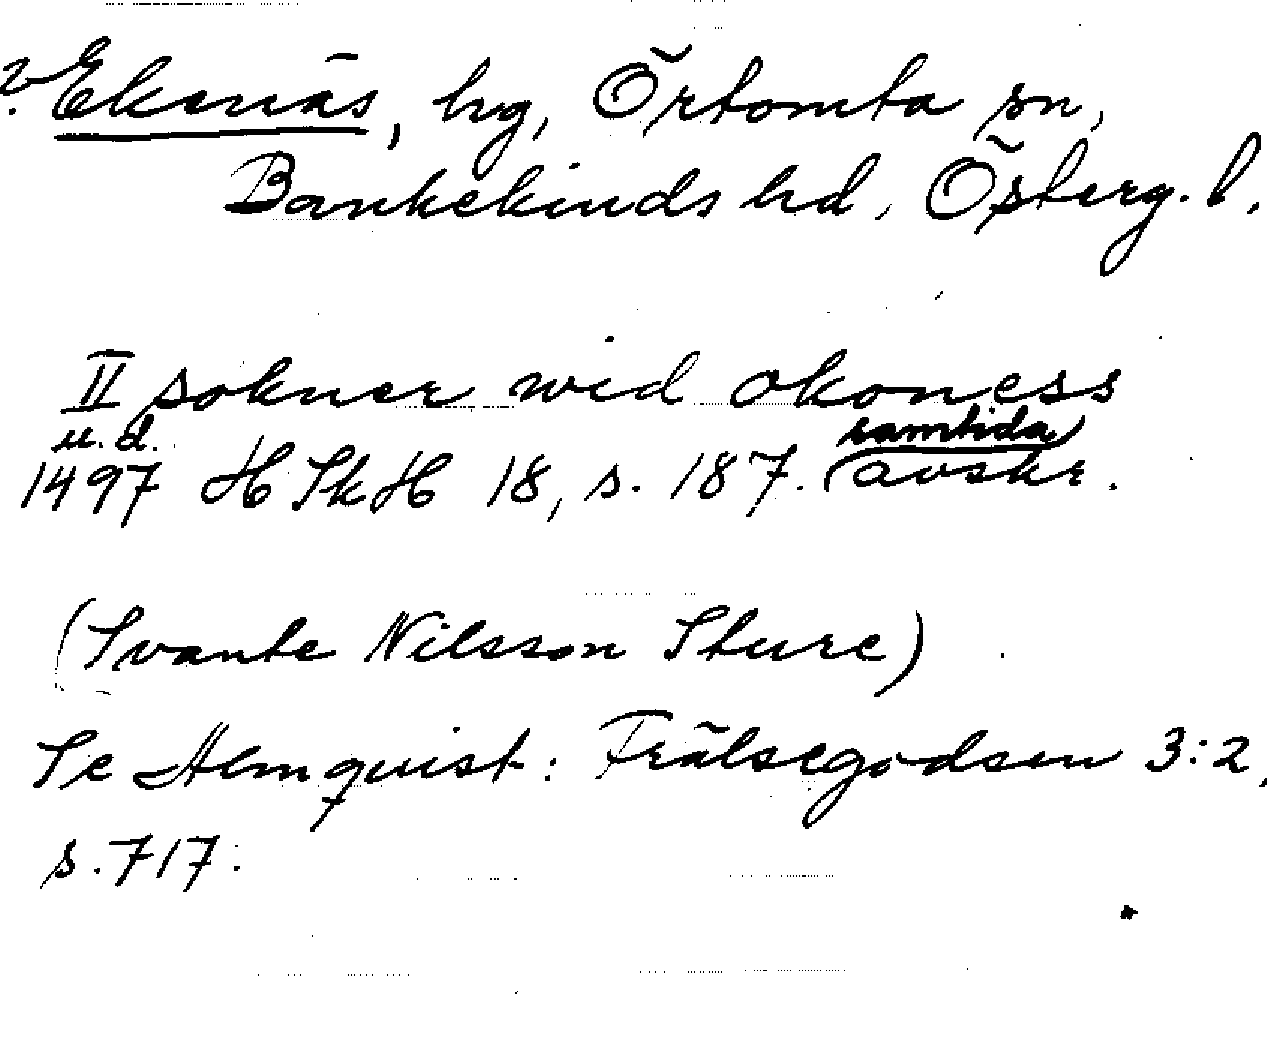 ? Ekenäs, hg, Örtomta sn,
Bankekinds hd, Österg. l.
II sokner wid okoness
u.d.
1497 HSkH 18, s. 187. (samtida)
avskr.
(Svante Nilsson Sture)
Se Almquist: Frälsegodsen 3:2,
s. 717.